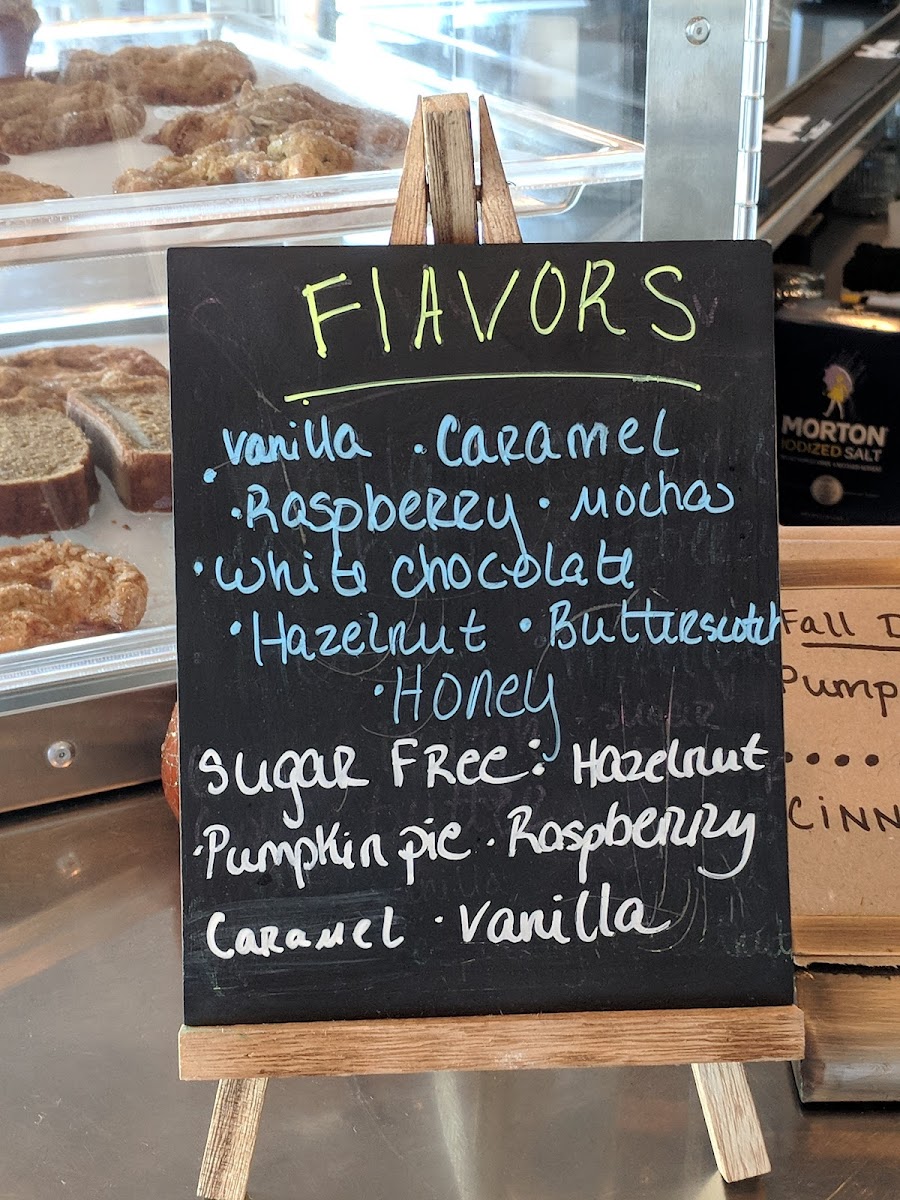 FlAVORS
vanilla · Caramel
· Raspberry · Mocha
· White chocolate
· Hazelnut · Butterscotch
· Honey
Sugar Free: Hazelnut
· Pumpkin pie · Raspberry
Caramel · Vanilla
MORTON
IODIZED SALT
Fall
Pump
CINN